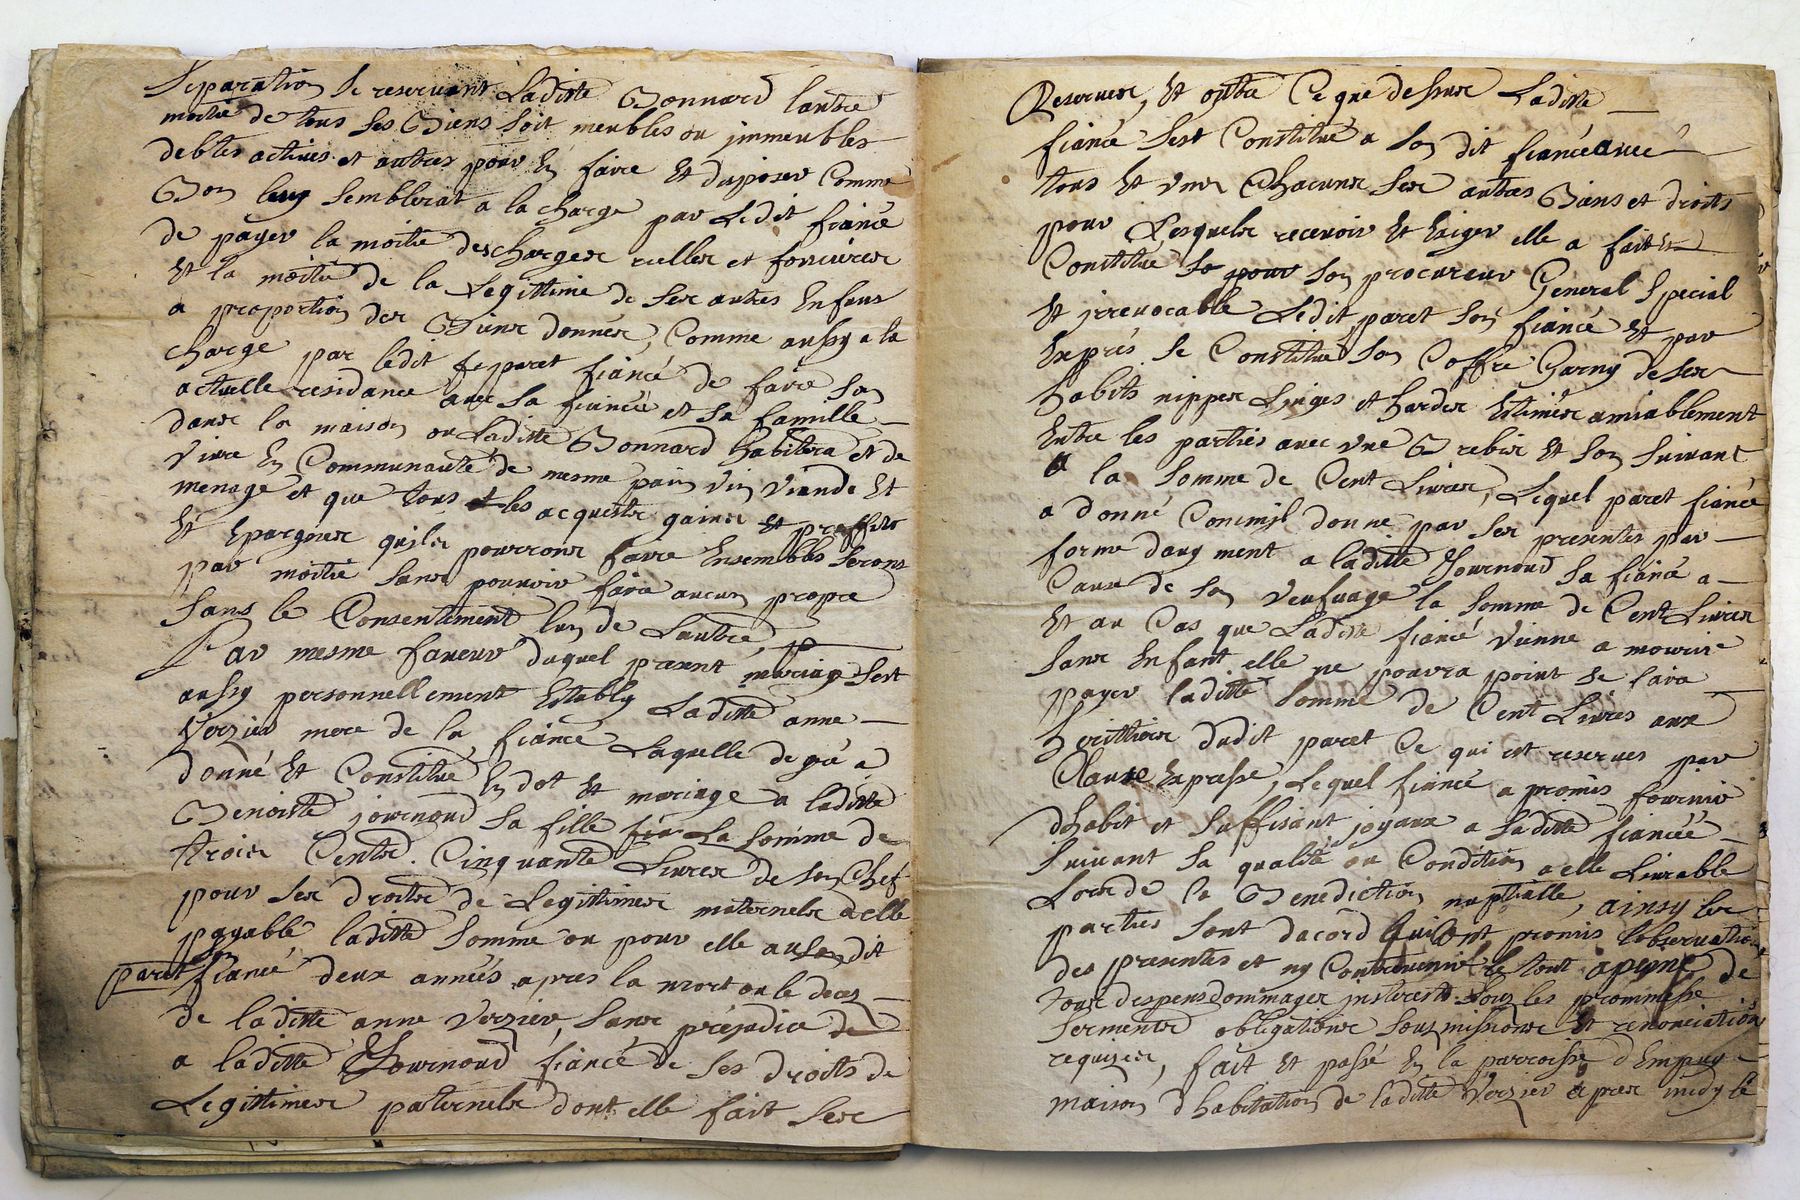 Separation se reservant Laditte Bonnard lautre
moitié de tous ses Biens soit meubles ou jmmeubles
debtes actives et autres pour En faire Et disposer Comme
Bon luy sembleroit a la charge par Ledit fiancé
de payer la moitié des charges reelles et foncieres
Et la moitié de la Legittime de ses autres Enfans
a proportion des Biens donnés, Comme aussy a la
charge par ledit paret fiancé de faire sa
actuelle residance avec sa fiancée et sa famille
dans la maison ou Laditte Bonnard habitera et de
vivre En Communauté de mesme pain vin viande Et
menage et que tous les acquests gains Et proffits
Et Epargnes quils pourrons faire Ensembles serons
par moitié sans pouvoir faire aucun propre
sans le Consentement lun de Lautre
Par mesme faveur duquel present mariage sest
aussy personnellement Estably Laditte anne
Verzier mere de la fiancée Laquelle de gré a
donné Et Constitué En dot Et mariage a laditte
Benoiste journoud sa fille La somme de
trois Cents Cinquante Livres de son Chef
pour ses droits de Legittimes maternels a elle
payable laditte somme ou pour elle a sondit
paret fiancé deux années apres la mort ou le deces
de laditte anne Verzier, sans prejudice de
a laditte Journoud fiancée de ses droits de
Legittimes paternels dont elle fait ses
Reserves, Et outre Ce que dessus Laditte
fiancé sest Constitué a son dit fiancé avec
tous Et uns Chacuns ses autres Biens et droits
pour Lesquels recevoir Et Exiger elle a fait Et
Constitué pour son procureur General special
Et jrrevocable Ledit paret son fiancé Et par
Exprés se Constitue son Coffre Garny de ses
habits nippes Linges et hardes Estimés amiablement
Entre les parties avec une Brebis Et son suivant
a la somme de Cent Livres, Lequel paret fiancé
a donné Comme jl donne par ses presentes par
forme daugment a laditte Journoud sa fiancé a
Cause de son veufvage la somme de Cent Livres
Et au Cas que Laditte fiancé vienne a mourir
sans Enfant elle ne pouvra point se faire
payer laditte somme de Cent Livres aux
herittiers dudit paret Ce qui est reservés par
Clause Expresse, Lequel fiancé a promis fournir
dhabit et suffisant joyaux a saditte fiancée
suivant sa qualité ou Condition a elle Livrable
Lors de la Benediction nuptialle, ainsy les
parties sont dacord qui ont promis lobservation
des presentes et ny Contrevenir le tout a peine de
tous despens dommages jnterests sous les prommesse
serments obligations sousmissions Et renonciations
requises, fait Et passé En la parroisse d'Empuy
maison d'habitation de laditte Verzier apres midy le